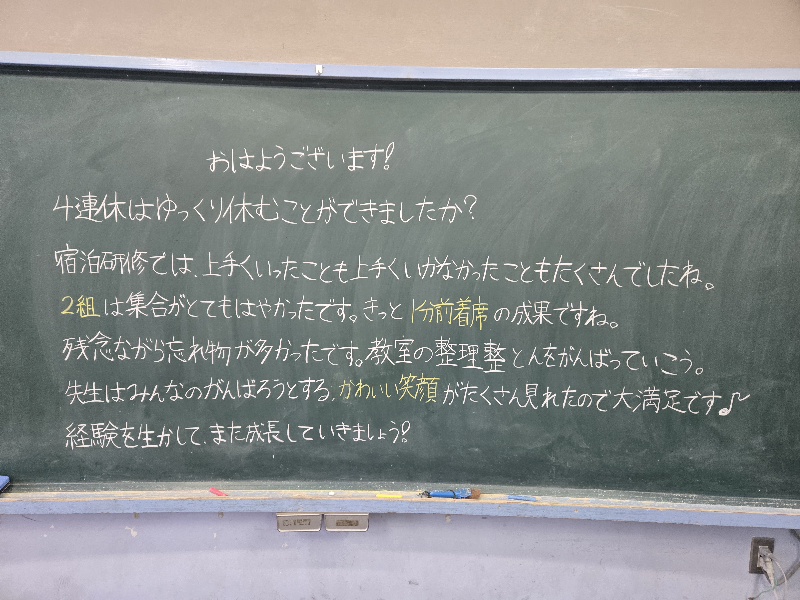 おはようございます!
4連休はゆっくり休むことができましたか?
宿泊研修では、上手くいったことも上手くいかなかったこともたくさんでしたね。
2組は集合がとてもはやかったです。きっと1分前着席の成果ですね。
残念ながら忘れ物が多かったです。教室の整理整とんをがんばっていこう。
先生はみんなのがんばろうとする、かわいい笑顔がたくさん見れたので大満足です♪
経験を生かして、また成長していきましょう!